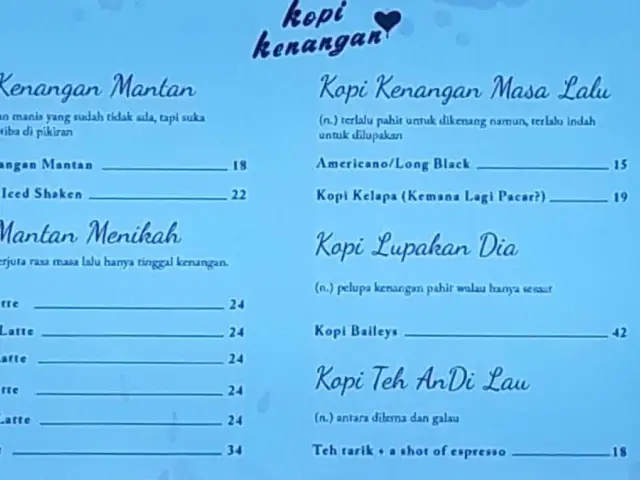 kopi
kenangan
Kenangan Mantan
manis yang sudah tidak ada, tapi suka
tiba di pikiran
angan Mantan 18
Iced Shaken 22
Mantan Menikah
erjuta rasa masa lalu hanya tinggal kenangan.
tte 24
Latte 24
atte 24
tte 24
Latte 24
34
Kopi Kenangan Masa Lalu
(n.) terlalu pahit untuk dikenang namun, terlalu indah
untuk dilupakan
Americano/Long Black 15
Kopi Kelapa (Kemana Lagi Pacar?) 19
Kopi Lupakan Dia
(n.) pelupa kenangan pahit walau hanya sesaat
Kopi Baileys 42
Kopi Teh AnDi Lau
(n.) antara dilema dan galau
Teh tarik + a shot of espresso 18